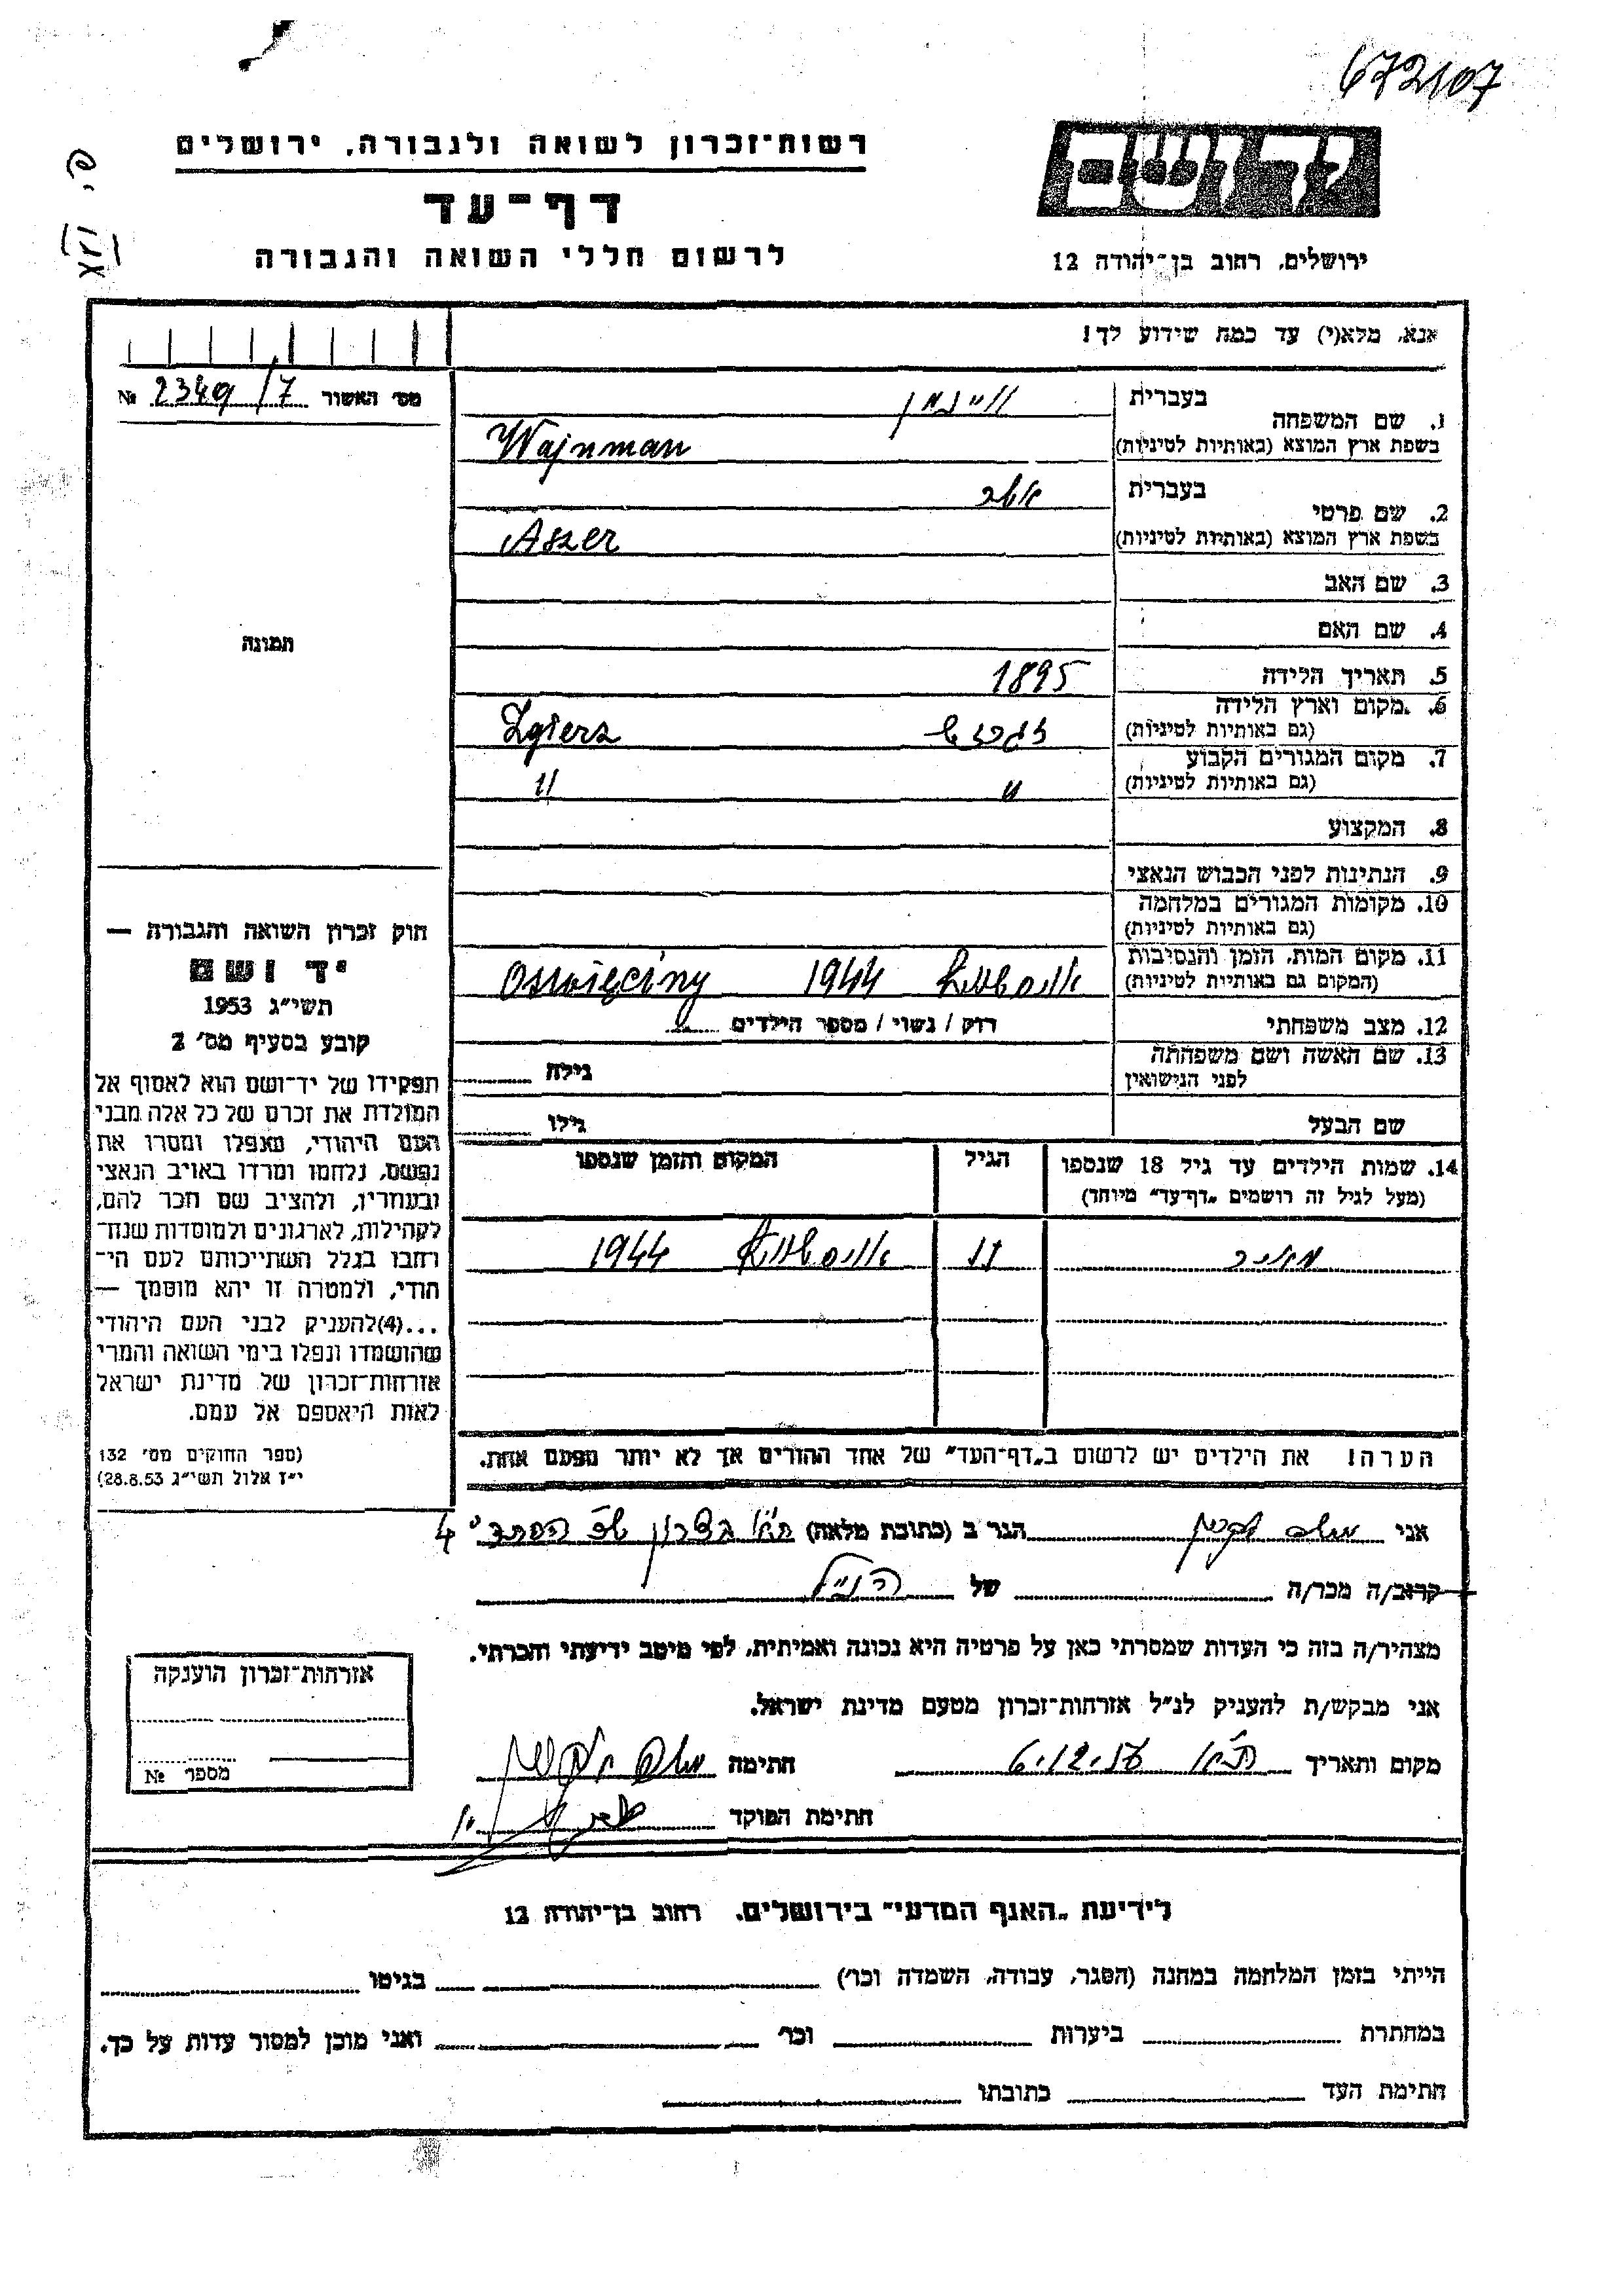 672107
רשות־זכרון לשואה ולגבורה, ירושלים
דף־עד
לרשום חללי השואה והגבורה
ירושלים, רחוב בן־יהודה 12
אנא, מלא(י) עד כמה שידוע לך!
מס׳ האשור 2349/7 №
1. שם המשפחה
בעברית ויינמן
בשפת ארץ המוצא (באותיות לטיניות) Wajnman
2. שם פרטי
בעברית אשר
בשפת ארץ המוצא (באותיות לטיניות) Aszer
3. שם האב
4. שם האם
5. תאריך הלידה 1895
6. מקום וארץ הלידה
(גם באותיות לטיניות) זגרז׳ Zgierz
7. מקום המגורים הקבוע
(גם באותיות לטיניות) " "
8. המקצוע
9. הנתינות לפני הכבוש הנאצי
10. מקומות המגורים במלחמה
(גם באותיות לטיניות)
11. מקום המות, הזמן והנסיבות
(המקום גם באותיות לטיניות) 1944 Oszwięciny
12. מצב משפחתי רוק / נשוי / מספר הילדים
13. שם האשה ושם משפחתה
לפני הנישואין גילה
שם הבעל גילו
14. שמות הילדים עד גיל 18 שנספו
(מעל לגיל זה רושמים „דף־עד״ מיוחד)
הגיל
המקום והזמן שנספו
מאיר 17 1944
הערה! את הילדים יש לרשום ב„דף־העד״ של אחד ההורים אך לא יותר מפעם אחת.
תמונה
חוק זכרון השואה והגבורה —
יד ושם
תשי״ג 1953
קובע בסעיף מס׳ 2
תפקידו של יד־ושם הוא לאסוף אל
המולדת את זכרם של כל אלה מבני
העם היהודי, שנפלו ומסרו את
נפשם, נלחמו ומרדו באויב הנאצי
ובעוזריו, ולהציב שם וזכר להם,
לקהילות, לארגונים ולמוסדות שנח־
רבו בגלל השתייכותם לעם הי־
הודי, ולמטרה זו יהא מוסמך —
...(4) להעניק לבני העם היהודי
שהושמדו ונפלו בימי השואה והמרי
אזרחות־זכרון של מדינת ישראל
לאות היאספם אל עמם.
(ספר החוקים מס׳ 132
י״ז אלול תשי״ג 28.8.53)
אני משה הגר ב (כתובת מלאה) ת״א 4
קרוב/ה מכר/ה של הנ״ל
מצהיר/ה בזה כי העדות שמסרתי כאן על פרטיה היא נכונה ואמיתית, לפי מיטב ידיעתי והכרתי.
אני מבקש/ת להעניק לנ״ל אזרחות־זכרון מטעם מדינת ישראל.
מקום ותאריך ת״א חתימה משה
חתימת הפוקד
אזרחות־זכרון הוענקה
מספר №
לידיעת „האגף המדעי״ בירושלים, רחוב בן־יהודה 12
הייתי בזמן המלחמה במחנה (הסגר, עבודה, השמדה וכו׳) בגיטו
במחתרת ביערות וכו׳ ואני מוכן למסור עדות על כך.
חתימת העד כתובתו